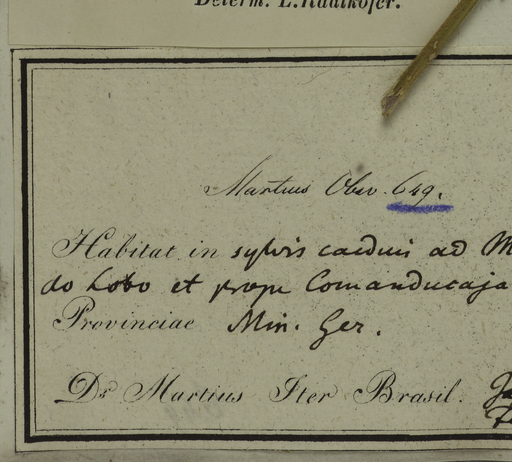 Determ. L. Radlkofer.
Martius Obsv. 649.
Habitat in sylvis caeduis ad M
do Lobo et prope Comanducaja
Provinciae Min. Ger.
Dr. Martius Iter Brasil.